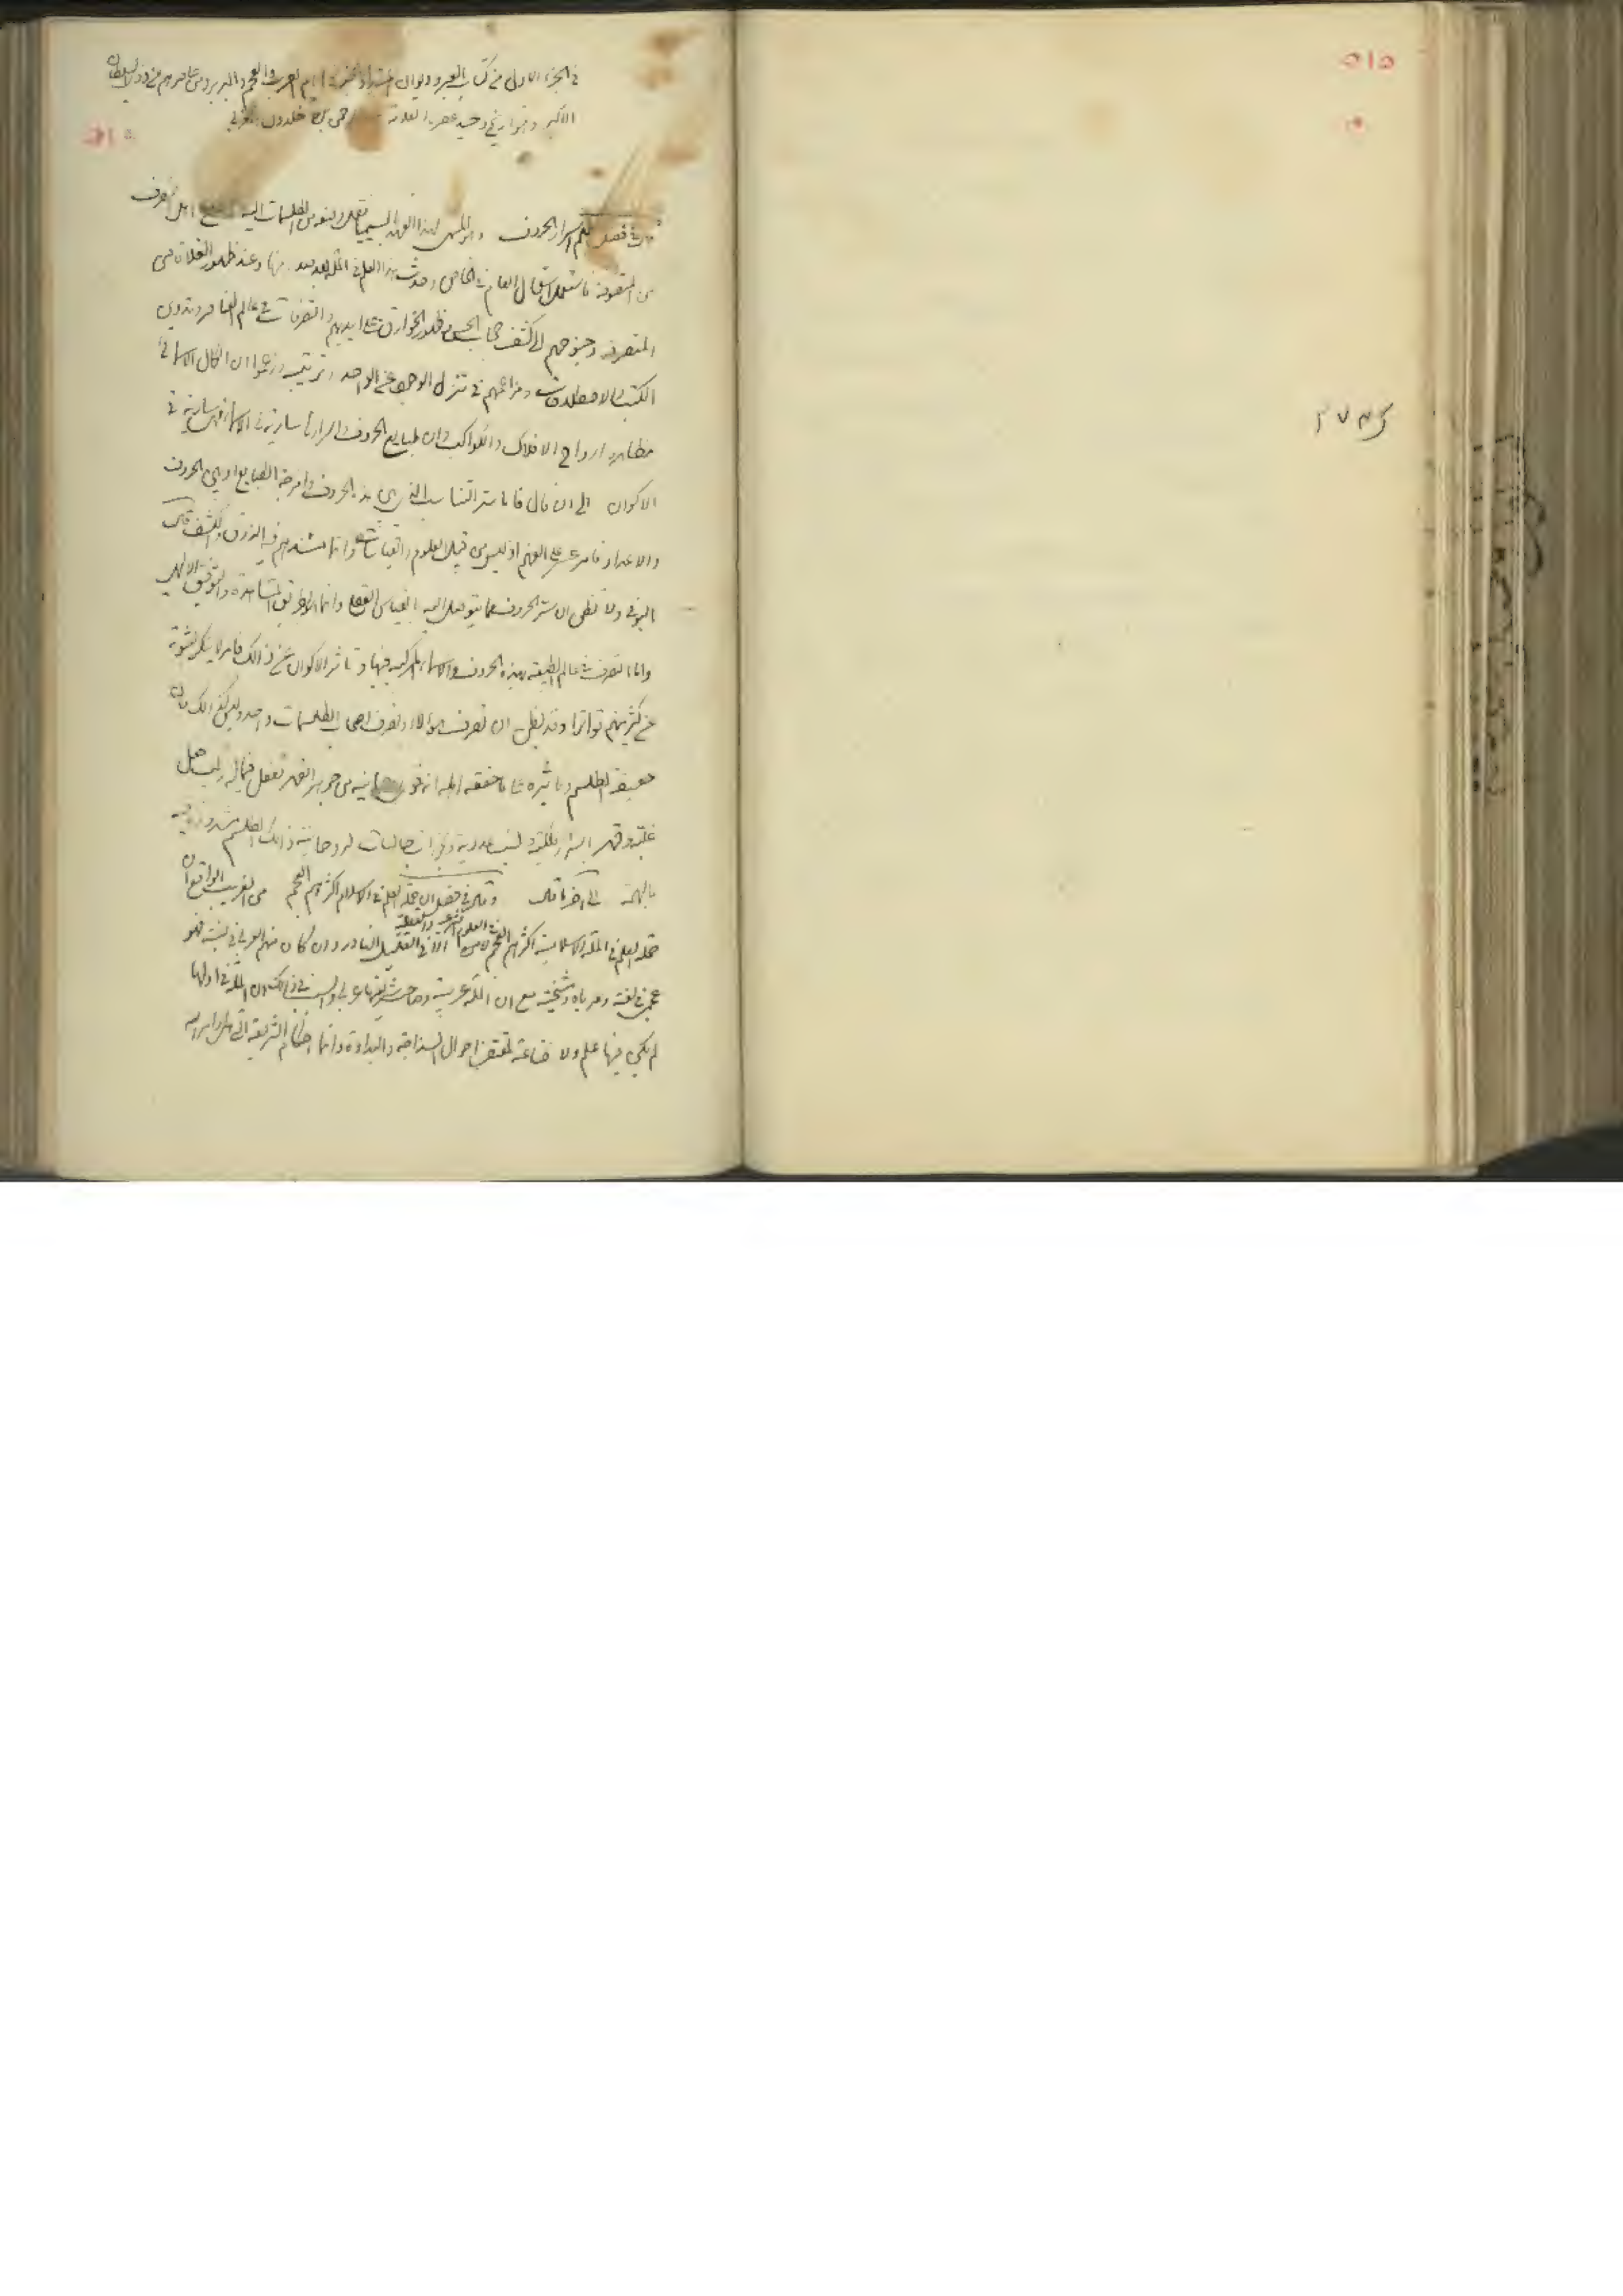 في الجزء الاول من كتاب العبر وديوان المبتدا والخبر في ايام العرب والعجم والبربر ومن عاصرهم من ذوي السلطان
الاكبر وحيد عصره العلامة خلدون المغربي
في فصل علم اسرار الحروف وهو المسمى لهذا العهد بالسيميا نقل وضعه من الطلسمات اليه في اصطلاح اهل التصرف
من المتصوفة فاستعمل استعمال العام في الخاص وحدث هذا العلم في الملة بعد صدر منها وعند ظهور الغلاة من
المتصوفة وجنوحهم الى كشف حجاب الحس وظهور الخوارق على ايديهم والتصرفات في عالم العناصر وتدوين
الكتب والاصطلاحات ومزاعمهم في تنزل الوجود عن الواحد وترتيبه وزعموا ان الكمال الاسمائي
مظاهره ارواح الافلاك والكواكب وان طبايع الحروف واسرارها سارية في الاسماء فهي سارية في
الاكوان الى ان قال فاما سر التناسب الذي بين هذه الحروف وامزجة الطبايع او بين الحروف
والاعداد فامر عسر على الفهم اذ ليس من قبيل العلوم والقياسات وانما مستندهم فيه الذوق والكشف قال
البوني ولا تظن ان سر الحروف مما يتوصل اليه بالقياس العقلي وانما هو بطريق المشاهدة والتوفيق الالهي
واما التصرف في عالم الطبيعة بهذه الحروف والاسماء المركبة فيها وتاثر الاكوان عن ذالك فامر لا ينكر لثبوته
عن كثير منهم تواترا وقد يظن ان تصرف هؤلاء وتصرف اصحاب الطلسمات واحد وليس كذالك فان
حقيقة الطلسم وتاثيره على ما حققه اهله انه قوى روحانية من جوهر القهر تفعل فيما له ركب فعل
غلبة وقهر باسرار فلكية ونسب عددية وبخورات جالبات لروحانية ذالك الطلسم مشدودة فيه
بالهمة الى آخر ما قال وقال في فصل ان حملة العلم في الاسلام اكثرهم العجم من الغريب الواقع ان
حملة العلم في الملة الاسلامية اكثرهم العجم لا من العلوم الشرعية والعقلية الا في القليل النادر وان كان منهم العربي في نسبته فهو
عجمي في لغته ومرباه ومشيخته مع ان الملة عربية وصاحب شريعتها عربي والسبب في ذالك ان الملة في اولها
لم يكن فيها علم ولا صناعة لمقتضى احوال السذاجة والبداوة وانما احكام الشريعة التي هي اوامر الله
٥١٥